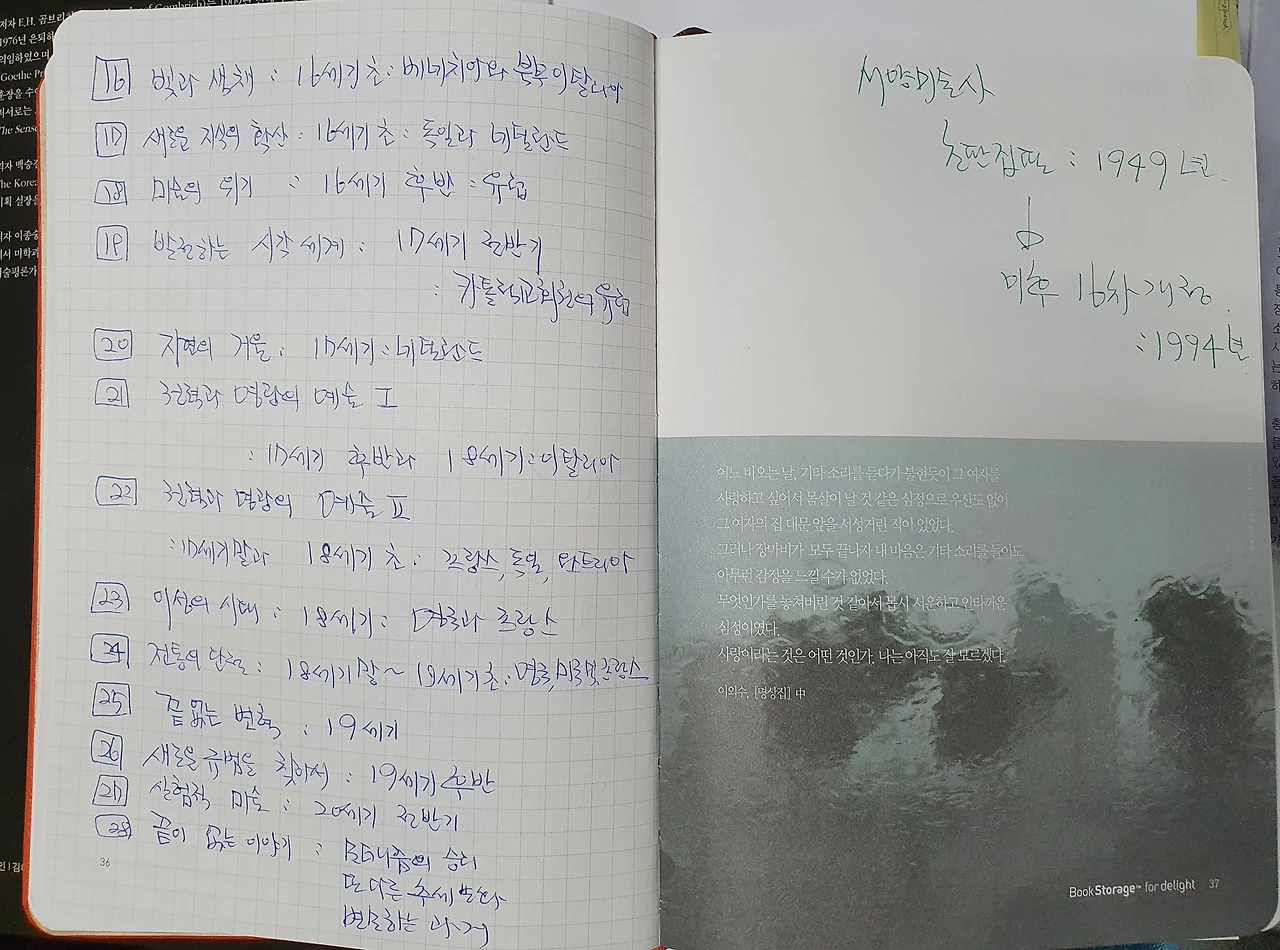 16 빛과 색채 : 16세기 초 : 베네치아와 북부 이탈리아
17 새로운 지식의 확산 : 16세기 초 : 독일과 네덜란드
18 미술의 위기 : 16세기 후반 : 유럽
19 발전하는 시각 세계 : 17세기 전반기
: 카톨릭교회권의 유럽
20 자연의 거울 : 17세기 : 네덜란드
21 권력과 영광의 예술 I
: 17세기 후반과 18세기 : 이탈리아
22 권력과 영광의 예술 II
: 17세기 말과 18세기 초 : 프랑스, 독일, 오스트리아
23 이성의 시대 : 18세기 : 영국과 프랑스
24 전통의 단절 : 18세기 말 ~ 19세기 초 : 영국, 미국 및 프랑스
25 끝없는 변혁 : 19세기
26 새로운 규범을 찾아서 : 19세기 후반
27 실험적 미술 : 20세기 전반기
28 끝이 없는 이야기 : 모더니즘의 승리
또 다른 추세 변화
변모하는 과거
36
서양미술사
초판집필 : 1949년.
이후 16차 개정.
: 1994년
어느 비오는 날, 기타 소리를 듣다가 불현듯이 그 여자를
사랑하고 싶어서 몸살이 날 것 같은 심정으로 우산도 없이
그 여자의 집 대문 앞을 서성거린 적이 있었다.
그러나 장마비가 모두 끝나자 내 마음은 기타 소리를 들어도
아무런 감정을 느낄 수가 없었다.
무엇인가를 놓쳐버린 것 같아서 몹시 서운하고 안타까운
심정이었다.
사랑이라는 것은 어떤 것인가, 나는 아직도 잘 모르겠다.
이외수, [명상집] 中
BookStorage™ for delight 37